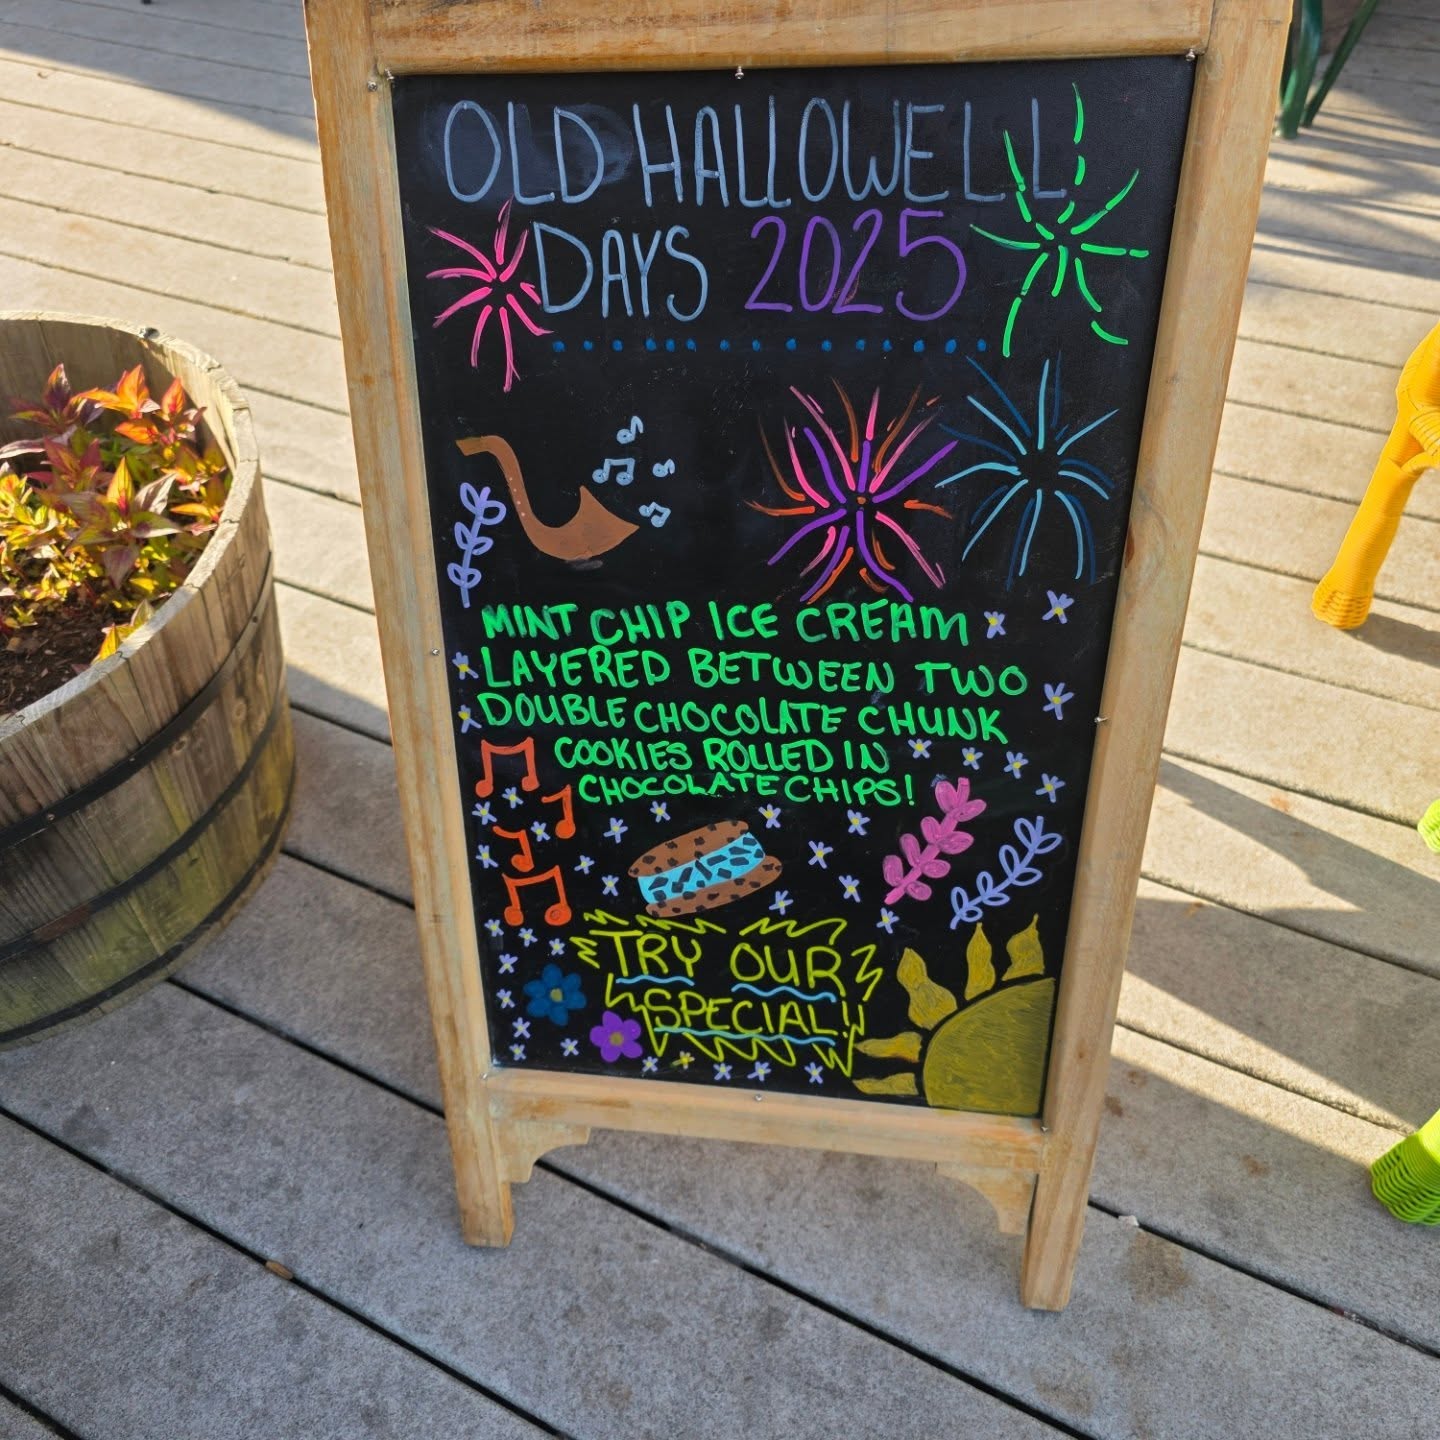 OLD HALLOWELL
DAYS 2025
MINT CHIP ICE CREAM
LAYERED BETWEEN TWO
DOUBLE CHOCOLATE CHUNK
COOKIES ROLLED IN
CHOCOLATE CHIPS!
TRY OUR
SPECIAL!!